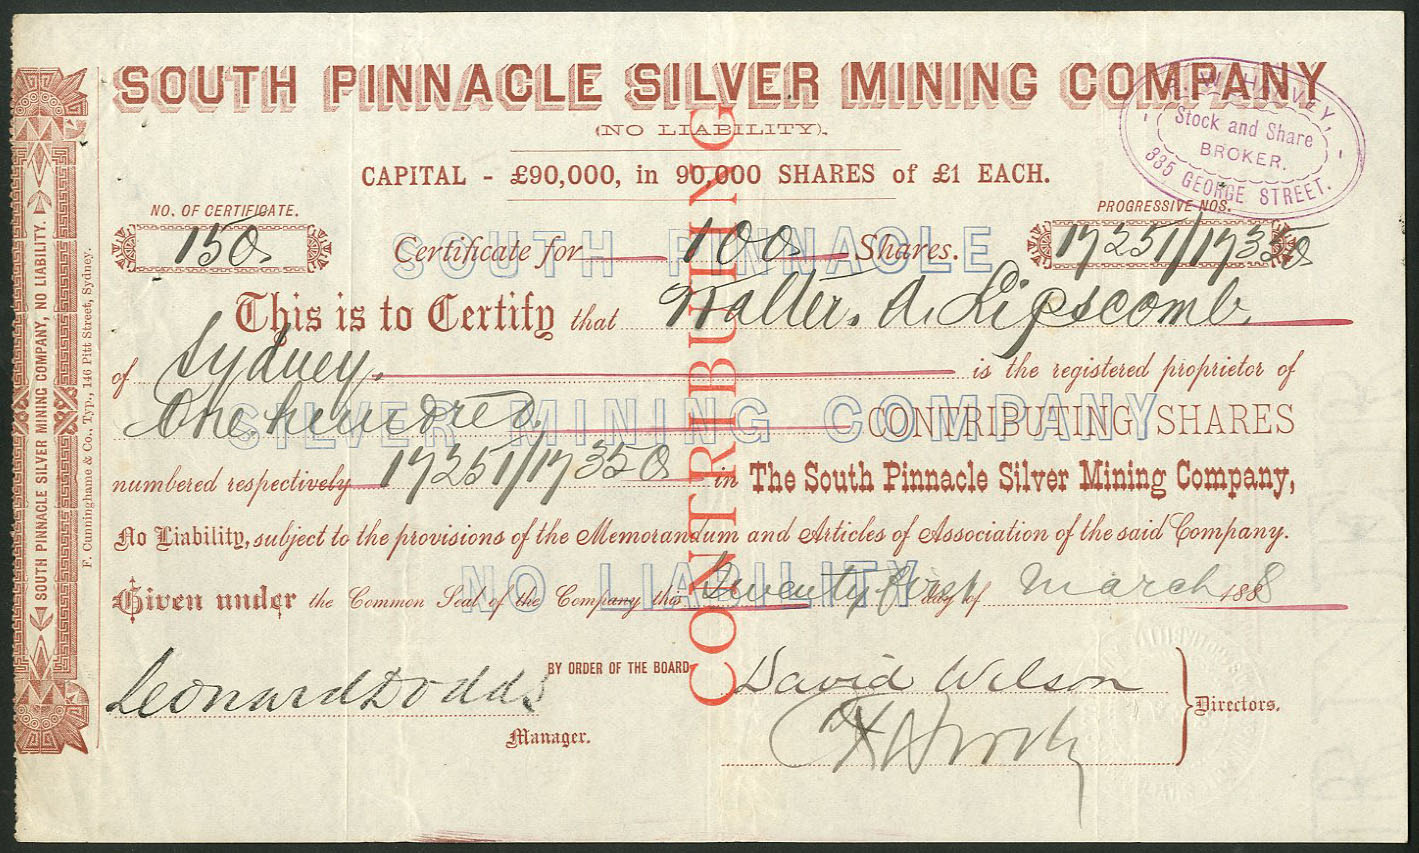 SOUTH PINNACLE SILVER MINING COMPANY
(NO LIABILITY).
CAPITAL - £90,000, in 90,000 SHARES of £1 EACH.
HARVEY,
Stock and Share
BROKER.
335 GEORGE STREET.
NO. OF CERTIFICATE.
150
Certificate for 100 Shares.
PROGRESSIVE NOS.
17251/17350
This is to Certify that Walter. A. Lipscomb
of Sydney. is the registered proprietor of
One hundred. CONTRIBUTING SHARES
numbered respectively 17251/17350 in The South Pinnacle Silver Mining Company,
No Liability, subject to the provisions of the Memorandum and Articles of Association of the said Company.
Given under the Common Seal of the Company this Twenty first day of March 1888
BY ORDER OF THE BOARD
Leonard Dodds
Manager.
David Wilson
Directors.
CONTRIBUTING
SOUTH PINNACLE
SILVER MINING COMPANY
NO LIABILITY
SOUTH PINNACLE SILVER MINING COMPANY, NO LIABILITY.
F. Cunninghame & Co., Typ., 146 Pitt Street, Sydney.